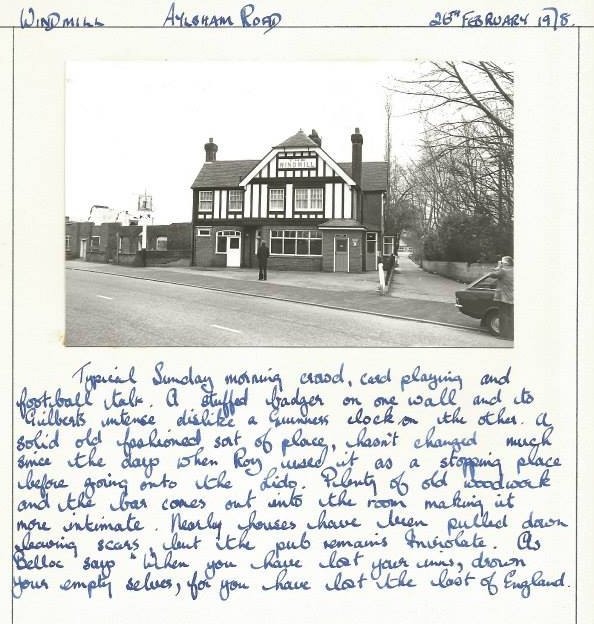 WINDMILL AYLSHAM ROAD 26TH FEBRUARY 1978.
WINDMILL
Typical Sunday morning crowd, card playing and
football talk. A stuffed badger on one wall and to
Gilberts intense dislike a Guinness clock on the other. A
solid old fashioned sort of place, hasn't changed much
since the days when Roy used it as a stopping place
before going onto the Lido. Plenty of old woodwork
and the bar comes out into the room making it
more intimate. Nearby houses have been pulled down
leaving scars, but the pub remains inviolate. As
Belloc says "When you have lost your inns, drown
your empty selves, for you have lost the last of England.